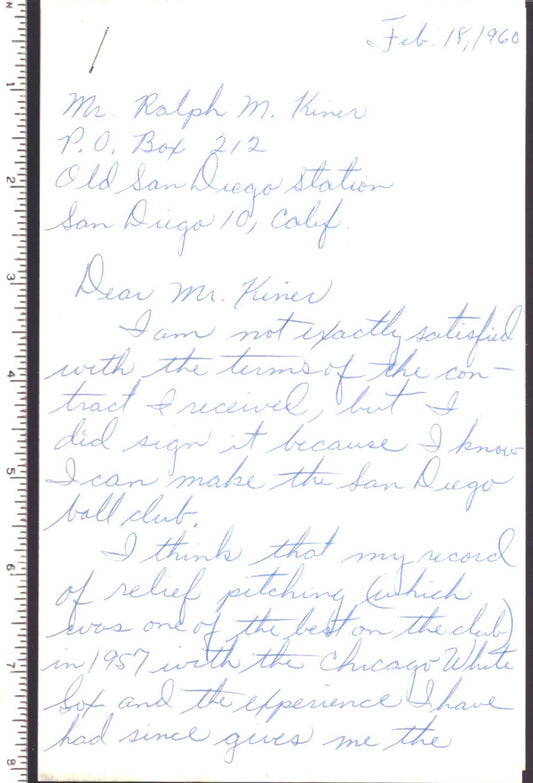 Feb. 18, 1960
Mr. Ralph M. Kiner
P.O. Box 212
Old San Diego Station
San Diego 10, Calif.
Dear Mr. Kiner
I am not exactly satisfied
with the terms of the con-
tract I received, but I
did sign it because I know
I can make the San Diego
ball club.
I think that my record
of relief pitching (which
was one of the best on the club)
in 1957 with the Chicago White
Sox and the experience I have
had since gives me the
1
2
3
4
5
6
7
8